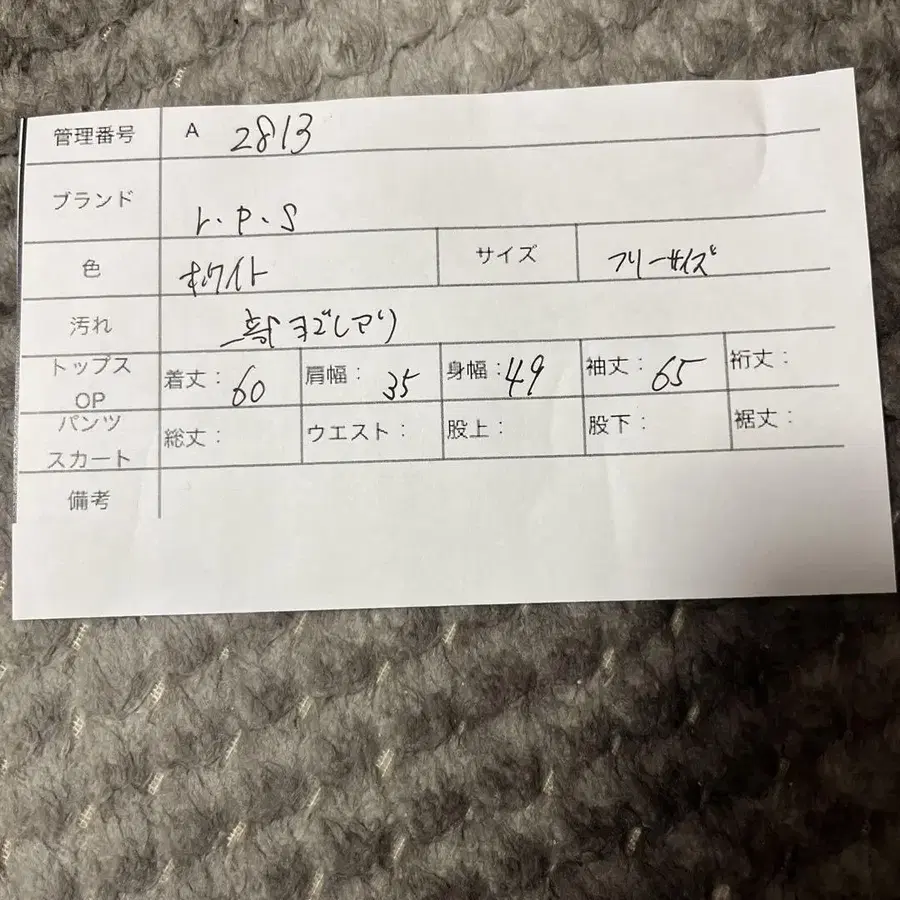 管理番号 A 2813
ブランド r.p.s
色 ホワイト サイズ フリーサイズ
汚れ 一部ヨゴレアリ
トップス OP 着丈: 60 肩幅: 35 身幅: 49 袖丈: 65 裄丈:
パンツ スカート 総丈: ウエスト: 股上: 股下: 裾丈:
備考